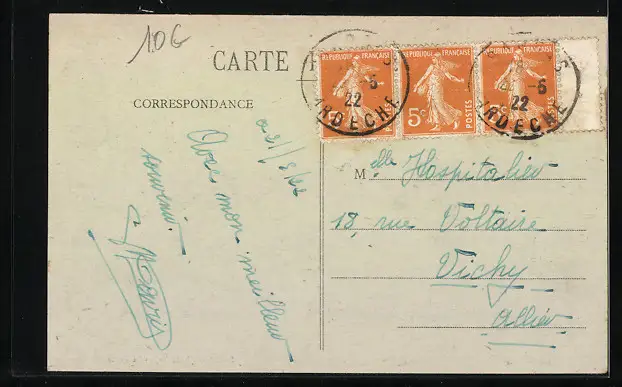 10G
CARTE
CORRESPONDANCE
REPUBLIQUE FRANÇAISE
5c POSTES
REPUBLIQUE FRANÇAISE
5c POSTES
REPUBLIQUE FRANÇAISE
-6
22
ARDECHE
-6
22
ARDECHE
Avec mon meilleur
souvenir.
Melle Hospitalier
18, rue Voltaire
Vichy
Allier